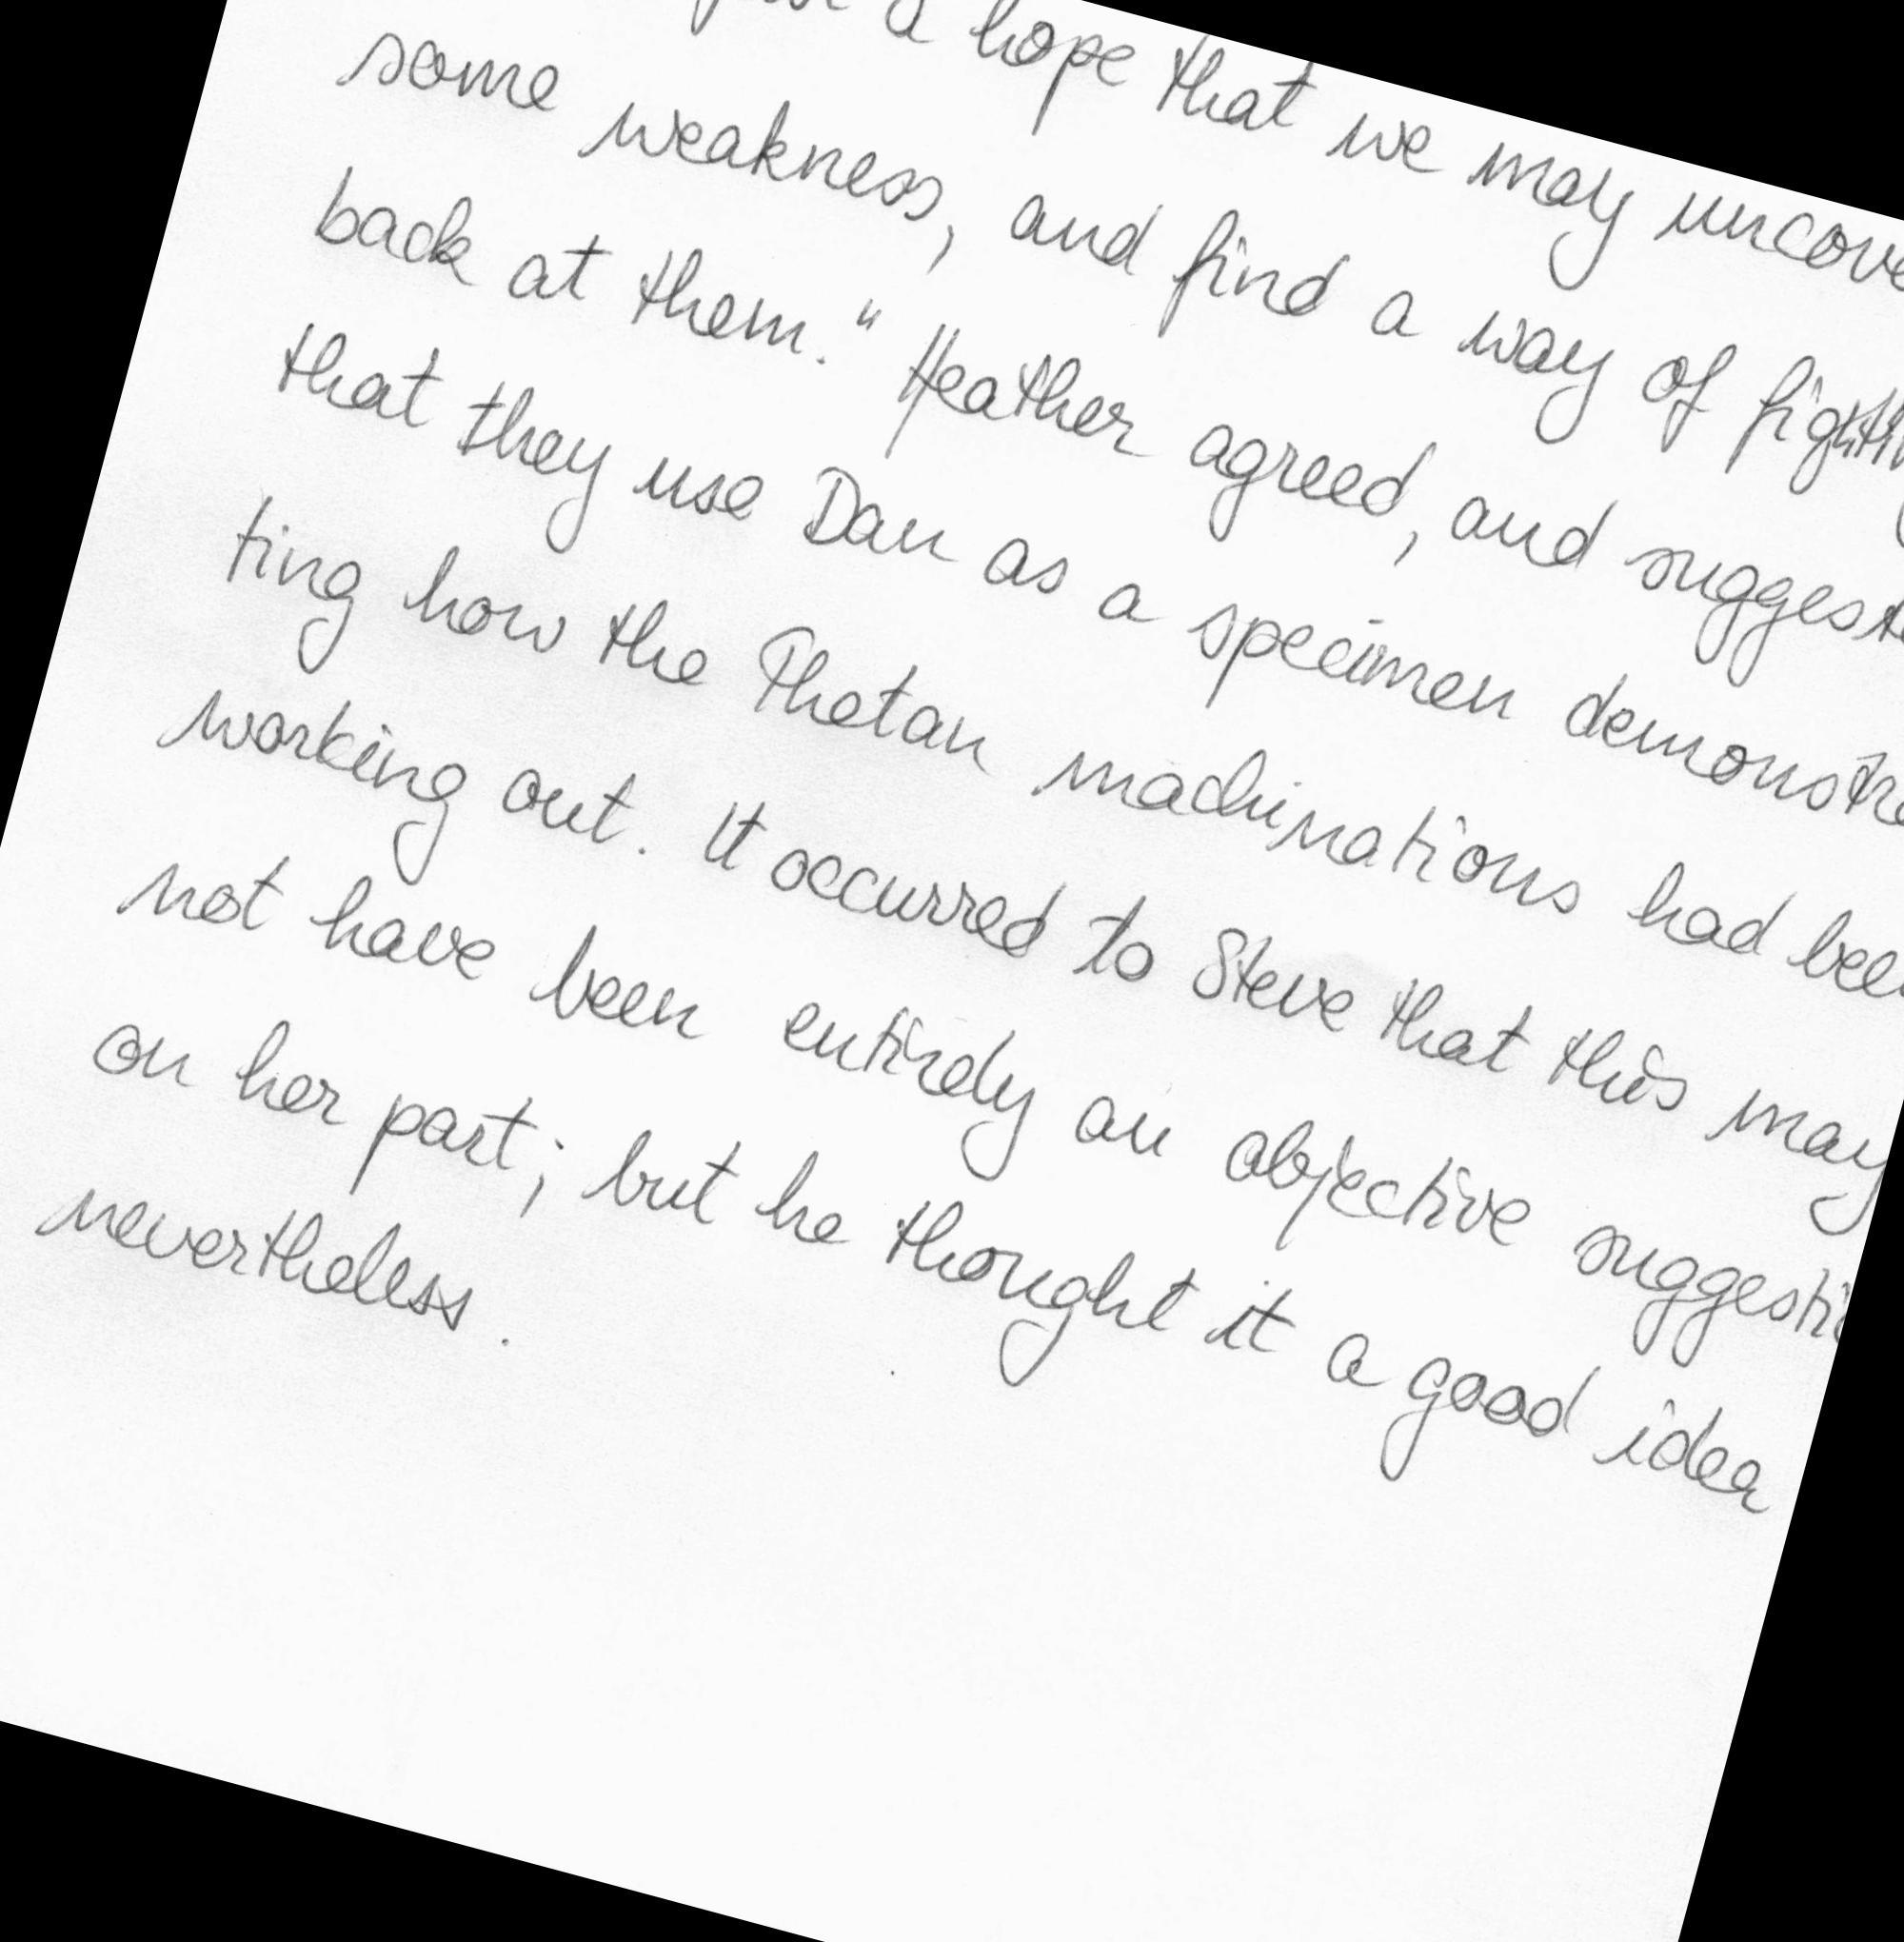 a hope that we may
some weakness, and find a way of
back at them." Heather agreed, and
that they use Dan as a specimen
ting how the Thetan machinations had
working out. It occurred to Steve that this may
not have been entirely an objective
on her part; but he thought it a good idea
nevertheless.